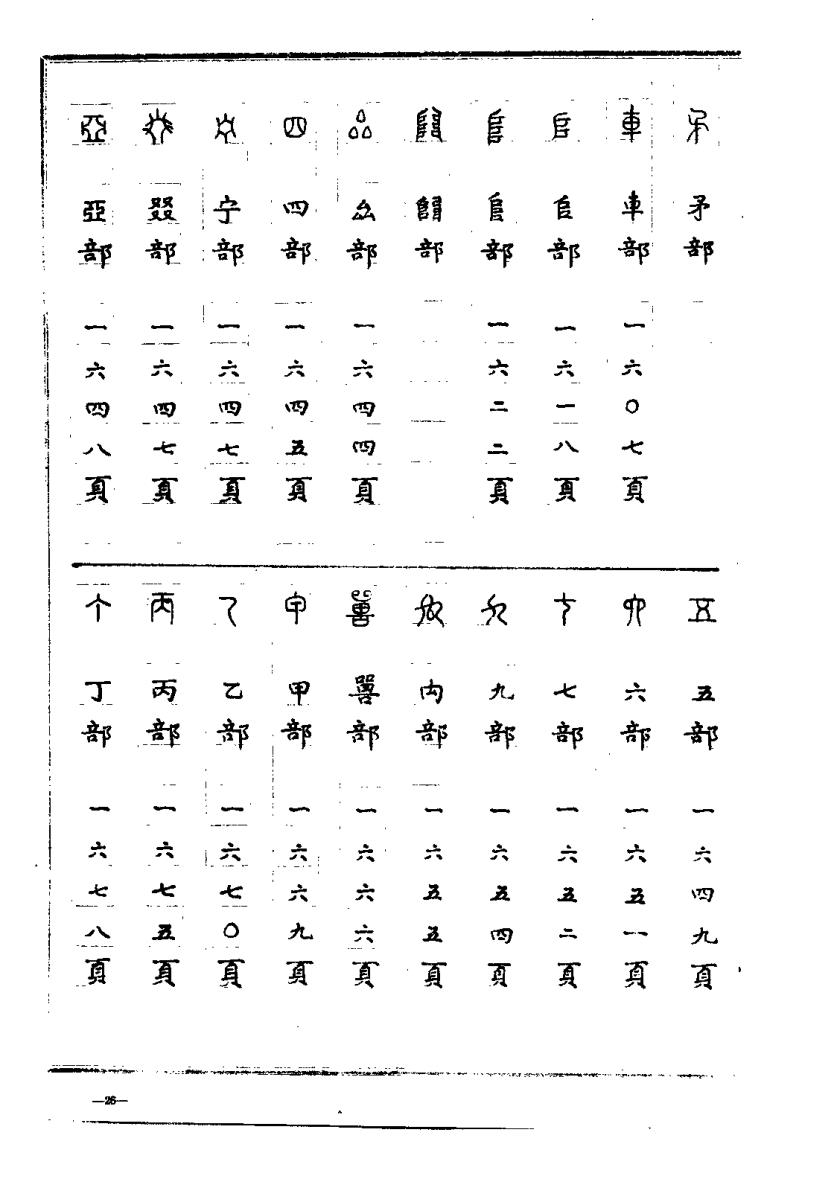 矛 矛部
車 車部 一六〇七頁
𠂤 𠂤部 一六一八頁
𨸏 𨸏部 一六二二頁
𨺅 𨺅部
厽 厽部 一六四四頁
四 四部 一六四五頁
宁 宁部 一六四七頁
叕 叕部 一六四七頁
亞 亞部 一六四八頁
五 五部 一六四九頁
六 六部 一六五一頁
七 七部 一六五二頁
九 九部 一六五四頁
禸 禸部 一六五五頁
嘼 嘼部 一六六六頁
甲 甲部 一六六九頁
乙 乙部 一六七〇頁
丙 丙部 一六七五頁
丁 丁部 一六七八頁
—26—